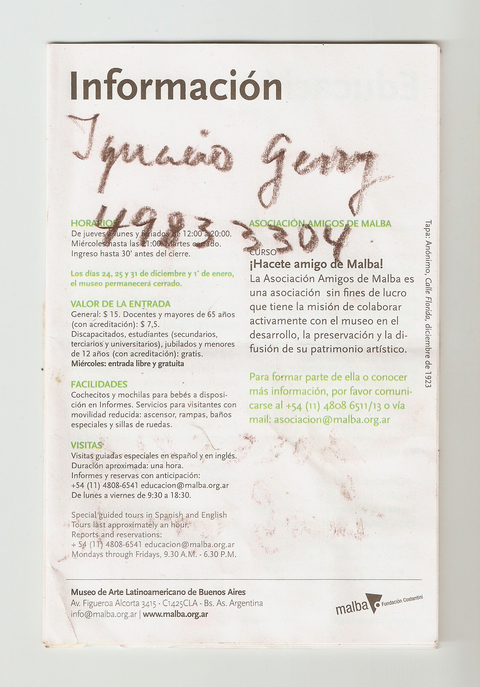 Información
Ignacio Gerry
4983 3304
HORARIOS
De jueves a lunes y feriados de 12:00 a 20:00.
Miércoles hasta las 21:00. Martes cerrado.
Ingreso hasta 30' antes del cierre.
Los días 24, 25 y 31 de diciembre y 1° de enero,
el museo permanecerá cerrado.
VALOR DE LA ENTRADA
General: $ 15. Docentes y mayores de 65 años
(con acreditación): $ 7,5.
Discapacitados, estudiantes (secundarios,
terciarios y universitarios), jubilados y menores
de 12 años (con acreditación): gratis.
Miércoles: entrada libre y gratuita
FACILIDADES
Cochecitos y mochilas para bebés a disposi-
ción en Informes. Servicios para visitantes con
movilidad reducida: ascensor, rampas, baños
especiales y sillas de ruedas.
VISITAS
Visitas guiadas especiales en español y en inglés.
Duración aproximada: una hora.
Informes y reservas con anticipación:
+54 (11) 4808-6541 educacion@malba.org.ar
De lunes a viernes de 9:30 a 18:30.
Special guided tours in Spanish and English
Tours last approximately an hour.
Reports and reservations:
+ 54 (11) 4808-6541 educacion@malba.org.ar
Mondays through Fridays, 9.30 A.M. - 6.30 P.M.
ASOCIACIÓN AMIGOS DE MALBA
CURSO
¡Hacete amigo de Malba!
La Asociación Amigos de Malba es
una asociación sin fines de lucro
que tiene la misión de colaborar
activamente con el museo en el
desarrollo, la preservación y la di-
fusión de su patrimonio artístico.
Para formar parte de ella o conocer
más información, por favor comuni-
carse al +54 (11) 4808 6511/13 o vía
mail: asociacion@malba.org.ar
Tapa: Anónimo, Calle Florida, diciembre de 1923
Museo de Arte Latinoamericano de Buenos Aires
Av. Figueroa Alcorta 3415 - C1425CLA - Bs. As. Argentina
info@malba.org.ar | www.malba.org.ar
malba Fundación Costantini